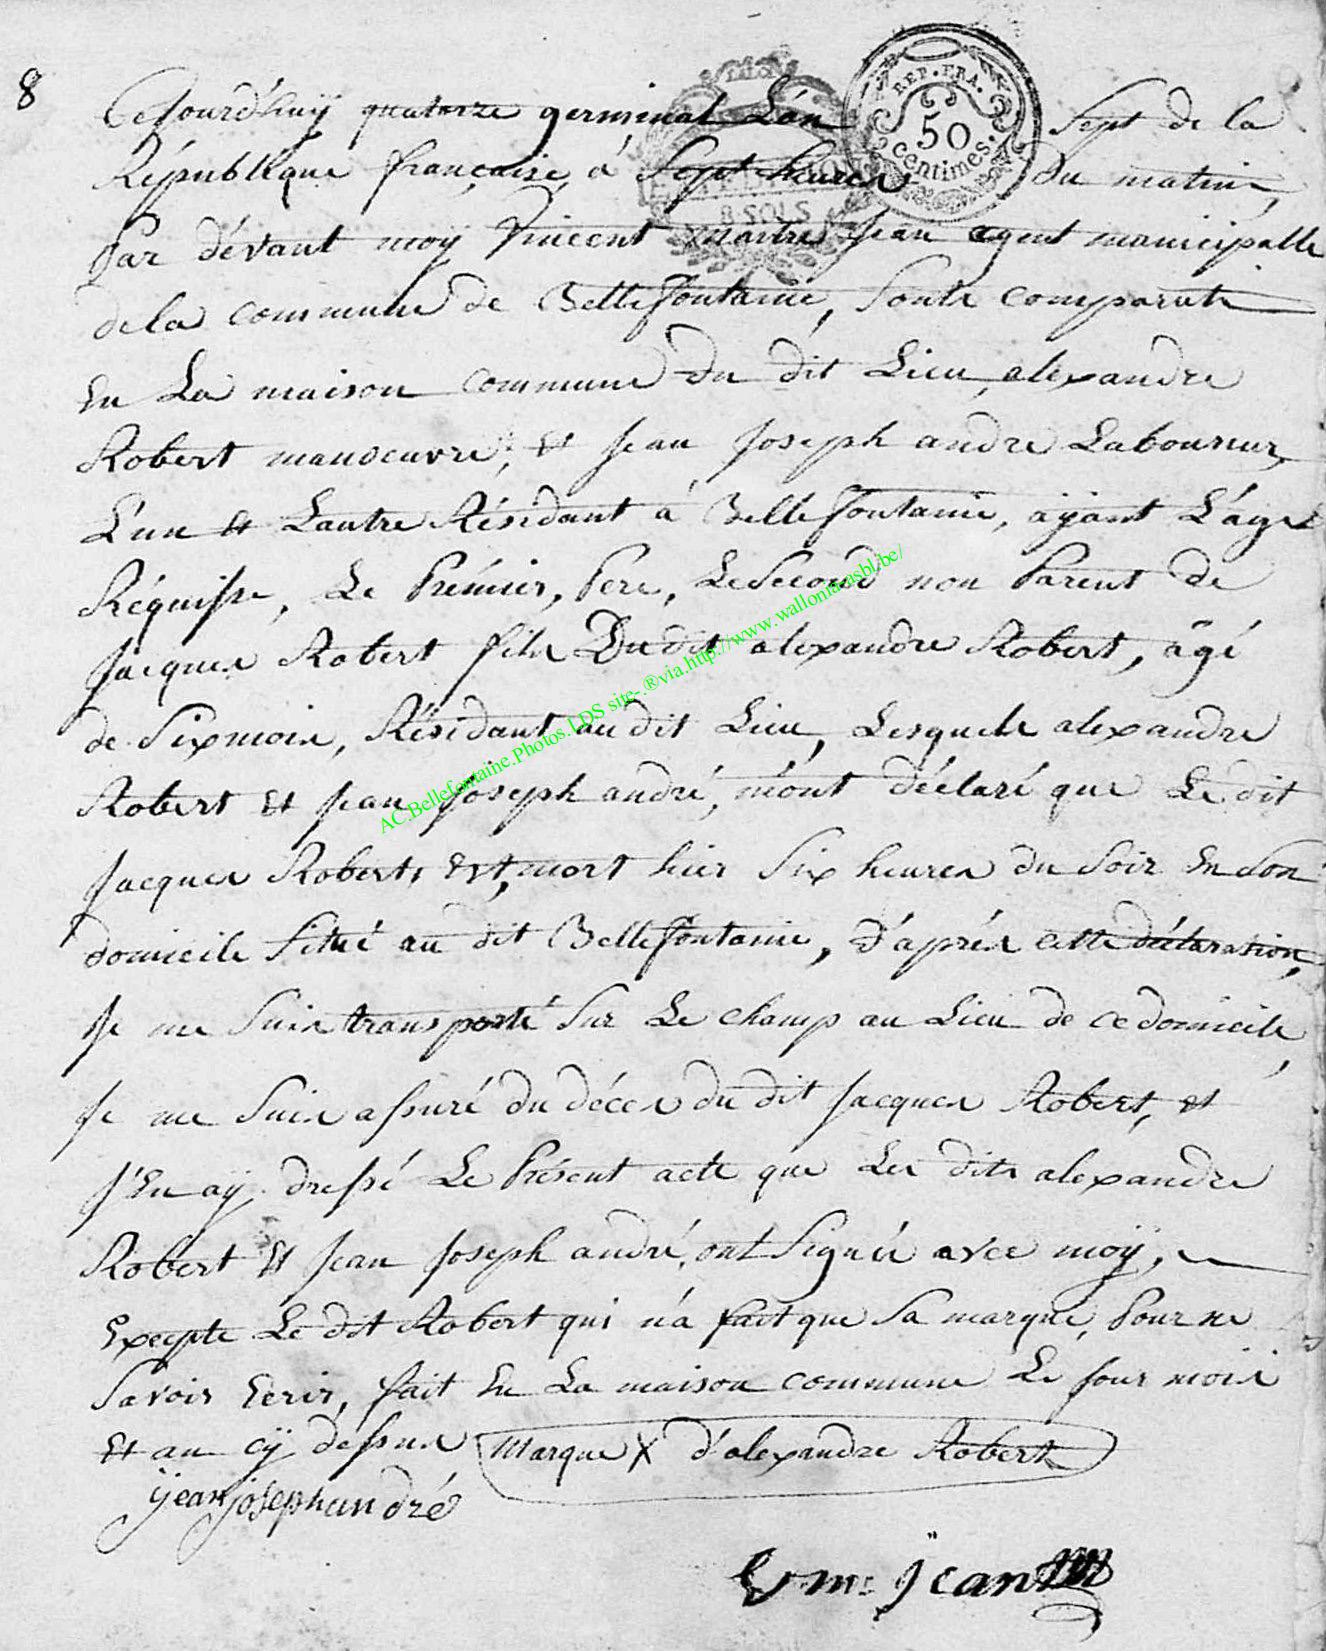 8
Cejourd'huÿ quatorze germinal L'an Sept de la
République française, á Sept heures du matin,
Par dévant moÿ Vincent martin Jean agent municipalle
dela commune de Bellefontaine, Sonts comparuts
En La maison commune du dit Lieu, alexandre
Robert manoeuvre, Et Jean Joseph andre Laboureur,
L'un Et Lautre Résidant á Bellefontaine, aÿant L'age
Réquisse, Le Prémier, Pére, LeSecond non Parent de
Jacques Robert fils Du dit alexandre Robert, agé
de Sixmois, Résidant au dit Lieu, Lesquels alexandre
Robert Et Jean Joseph andré, m'ont déclaré que Le dit
Jacques Robert, Est mort hier Six heures du Soir En Son
domicile Situé au dit Bellefontaine, d'aprés cette déclaration,
Je me Suis transporté Sur Le champ au Lieu de ce domicile,
Je me Suis assuré du décès du dit Jacques Robert, et
J'En aÿ dressé Le Présent acte que Les dits alexandre
Robert Et Jean Joseph andré, ont Signés avec moÿ,
Excepte Le dit Robert qui n'a fait que Sa marque, Pour ne
Savoir Ecrir, fait En La maison commune Le jour mois
Et an cÿ dessus Marque X d'alexandre Robert
jjean josephandré
V m: jean
REP. FRA.
50
centimes.
8 SOLS
AC.Bellefontaine.Photos.LDS site-.®via.http://www.walloniacasbl.be/